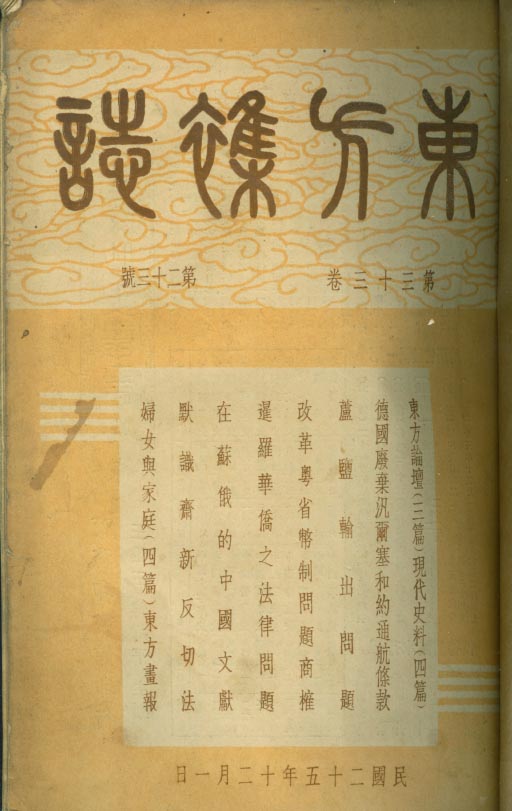 東方雜誌
第三十三卷
第二十三號
東方論壇（三篇）現代史料（四篇）
德國廢棄汎爾塞和約通航條款
蘆鹽輸出問題
改革粵省幣制問題商榷
暹羅華僑之法律問題
在蘇俄的中國文獻
默識齋新反切法
婦女與家庭（四篇）東方畫報
民國二十五年十二月一日